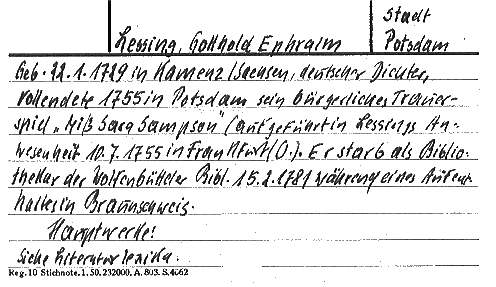 Stadt
Lessing, Gotthold Ephraim Potsdam
Geb. 22.1.1729 in Kamenz/Sachsen, deutscher Dichter,
vollendete 1755 in Potsdam sein bürgerliches Trauer-
spiel „Miß Sara Sampson" (aufgeführt in Lessings An-
wesenheit 10.7.1755 in Frankfurt (O.). Er starb als Biblio-
thekar der Wolfenbütteler Bibl. 15.2.1781 während eines Aufent-
haltes in Braunschweig.
Hauptwerke:
siehe Literaturlexika.
Reg. 10 Stichnote. 1. 50. 232000. A. 803. S. 4662